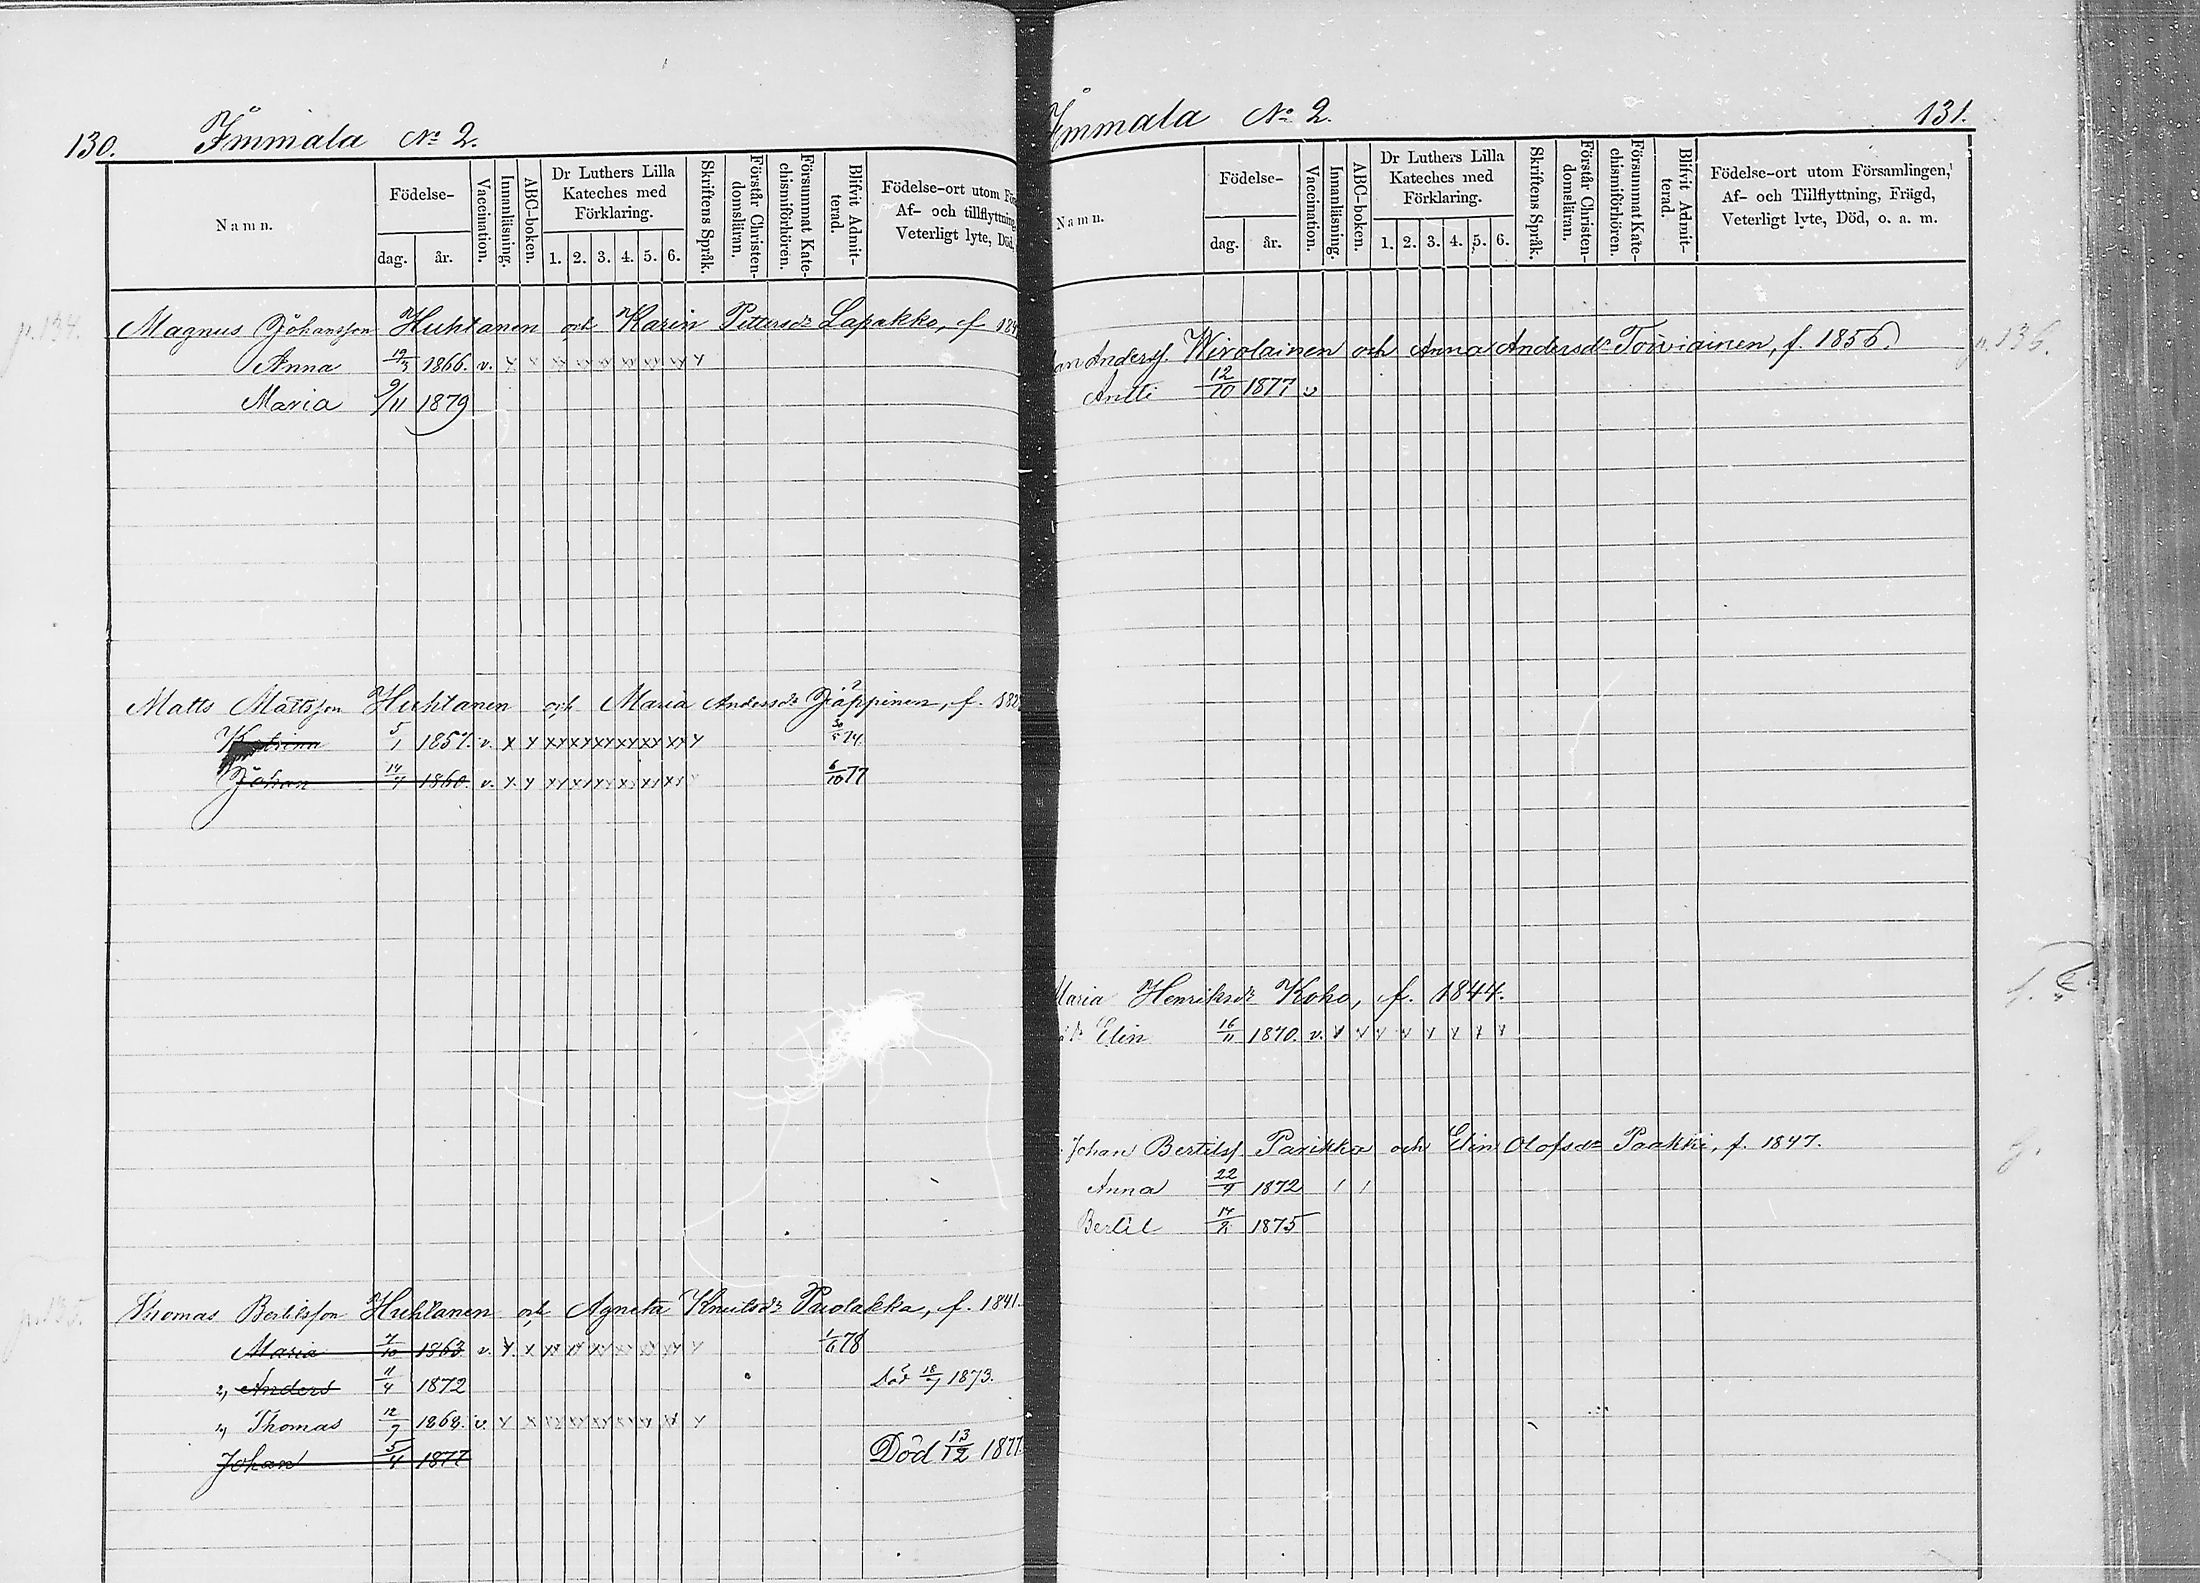 130. Immala No 2.
Namn. Födelse- dag. år. Vaccination. Innanläsning. ABC-boken. Dr Luthers Lilla Kateches med Förklaring. 1. 2. 3. 4. 5. 6. Skriftens Språk. Förstår Christendomsläran. Försummat Katechismiförhören. Blifvit Admitterad. Födelse-ort utom För Af- och tillflyttning Veterligt lyte, Död,
p. 134. Magnus Johansson Huhtanen och Karin Pettersdr Lapakko, f 184
Anna 19/3 1866. v. x x xx xx xx xx xx xx x
Maria 9/11 1879
Matts Mattsson Huhtanen och Maria Andersdr Jäppinen, f. 182
Katrina 5/1 1857. v. x x xx xx xx xx xx xx x 74
Johan 14/7 1860. v. x x xx xx xx xx xx xx x 6/10 77
p. 135. Thomas Bertilsson Huhtanen och Agneta Knutsdr Puolakka, f. 1841.
Maria 7/10 1863 v. x x xx xx xx xx xx xx x 1/6 78
2, Anders 11/4 1872 död 18/7 1873.
2, Thomas 12/7 1868. v. x x xx xx xx xx xx xx x
Johan 5/4 1877 Död 13/12 1877
Immala No 2. 131.
Namn. Födelse- dag. år. Vaccination. Innanläsning. ABC-boken. Dr Luthers Lilla Kateches med Förklaring. 1. 2. 3. 4. 5. 6. Skriftens Språk. Förstår Christendomsläran. Försummat Katechismiförhören. Blifvit Admitterad. Födelse-ort utom Församlingen, Af- och Tiilflyttning, Frägd, Veterligt lyte, Död, o. a. m.
an Anderss. Wirolainen och Anna Andersdr Toiviainen, f. 1856. p. 136.
Antti 12/10 1877 v
Maria Henriksdr Koho, f. 1844.
Elin 16/11 1870. v. x x x x x x x x
Johan Bertilss. Parikka och Elin Olofsdr Paakki, f. 1847.
Anna 22/9 1872 / /
Bertil 17/2 1875